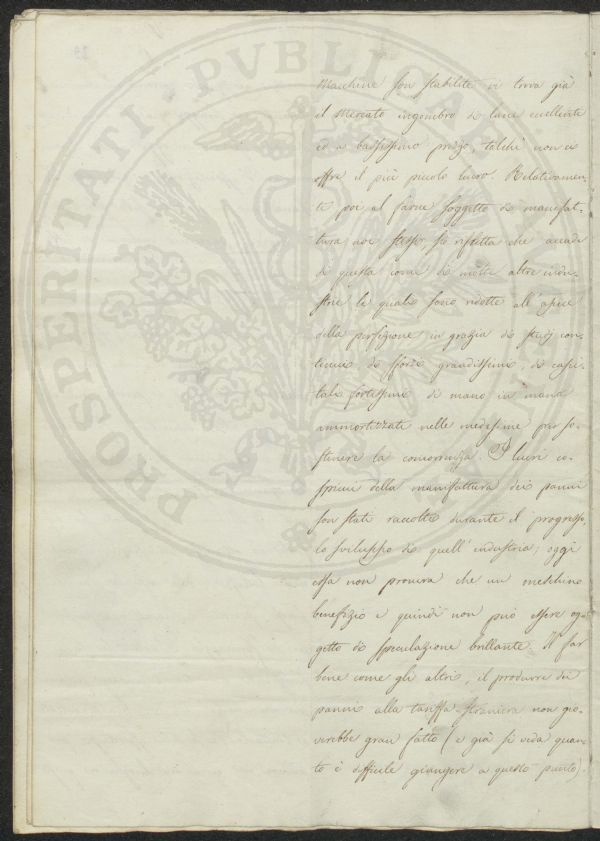 PROSPERITATI · PVBLICAE · AVGENDAE
Macchine son stabilite vi trova già
il Mercato ingombro di lane eccellenti
ed a bassissimo prezzo, talchè non ci
offre il più piccolo lucro. Relativamen-
te poi al farne soggetto di manifat-
tura noi stessi, si rifletta che accade
di questa come di molte altre indu-
strie le quali sono ridotte all'apice
della perfezione in grazia di studj con-
tinui di sforzi grandissimi, di capi-
tali fortissimi di mano in mano
ammortizzati nelle medesime per so-
stenere la concorrenza. I lucri co-
spicui della manifattura dei panni
son stati raccolti durante il progresso,
lo sviluppo di quell'industria; oggi
essa non procura che un meschino
benefizio e quindi non può essere og-
getto di speculazione brillante. Il far
bene come gli altri, il produrre dei
panni alla tariffa straniera non gio-
verebbe gran fatto (e già si veda quan-
to è difficile giungere a questo punto).